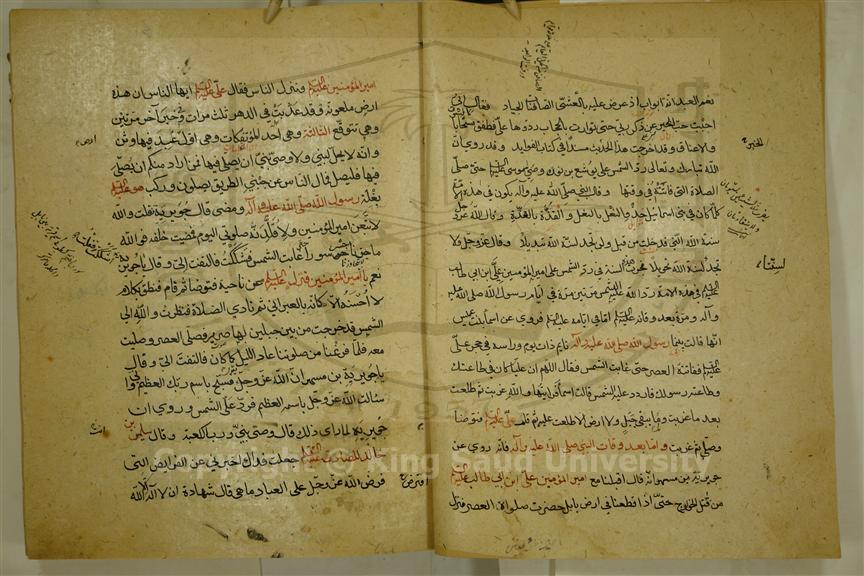 نعم العبد انه اواب اذ عرض عليه بالعشي الصافنات الجياد فقال اني
احببت حب الخير عن ذكر ربي حتى توارت بالحجاب ردوها علي فطفق مسحا بالسوق
والاعناق وقد اخرجت هذا الحديث مسندا في كتاب الفوايد وقد روي ان
الله تبارك وتعالى رد الشمس على يوشع بن نون وصي موسى عليه السلام حتى صلى
الصلاة التي فاتته في وقتها وقال النبي صلى الله عليه وآله يكون في هذه الامة
كلما كان في بني اسرائيل حذو النعل بالنعل والقذة بالقذة وقال الله عز وجل
سنة الله التي قد خلت من قبل ولن تجد لسنة الله تبديلا وقال عز وجل ولا
تجد لسنة الله تحويلا فجرت هذه السنة في رد الشمس على امير المؤمنين علي بن ابي طالب
عليه السلام في هذه الامة رد الله عليه الشمس مرتين مرة في ايام رسول الله صلى الله عليه
وآله ومرة بعد وفاته عليه السلام اما في ايامه عليه السلام فروي عن اسماء بنت عميس
انها قالت بينما رسول الله صلى الله عليه وآله نايم ذات يوم وراسه في حجر علي
عليه السلام ففاتته العصر حتى غابت الشمس فقال اللهم ان عليا كان في طاعتك
وطاعة رسولك فاردد عليه الشمس قالت اسماء فرايتها والله غربت ثم طلعت
بعد ما غربت ولم يبقى جبل ولا ارض الا طلعت عليه ثم قام علي عليه السلام فتوضا
وصلى ثم غربت واما بعد وفات النبي صلى الله عليه وآله فانه روي عن
جويرية بن مسهر انه قال اقبلنا مع امير المؤمنين علي ابن ابي طالب عليه السلام
من قتل الخوارج حتى اذا قطعنا في ارض بابل حضرت صلوة العصر فنزل
امير المؤمنين عليه السلام ونزل الناس فقال علي عليه السلام ايها الناس ان هذه
ارض ملعونة وقد عذبت في الدهر ثلث مرات وفي خبر آخر مرتين
وهي تتوقع الثالثة وهي احد المؤتفكات وهي اول عبد فيها وثن
وانه لا يحل لنبي ولا وصي نبي ان يصلي فيها فمن اراد منكم ان يصلي
فيها فليصل فمال الناس عن جنبي الطريق يصلون وركب هو عليه السلام
بغلة رسول الله صلى الله عليه وآله ومضى قال جويرية فقلت والله
لاتبعن امير المؤمنين ولاقلدنه صلوتي اليوم فمضيت خلفه فوالله
ما جزنا جسر سورا حتى غابت الشمس فشككت فالتفت الي وقال يا جويرية
نعم يا امير المؤمنين فنزل عليه السلام عن ناحية فتوضا ثم قام فنطق بكلام
لا احسنه الا كانه بالعبراني ثم نادى الصلاة فنظرت والله الى
الشمس قد خرجت من بين جبلين لها صرير فصلى العصر وصليت
معه فلما فرغنا من صلوتنا عاد الليل كما كان فالتفت الي وقال
يا جويرية بن مسهر ان الله عز وجل يقول فسبح باسم ربك العظيم واني
سئلت الله عز وجل باسمه العظيم فرد علي الشمس وروي ان
جويرية لما راى ذلك قال وصي نبي ورب الكعبة وقال سليمن بن
خالد للصادق عليه السلام جعلت فداك اخبرني عن الفرايض التي
فرض الله عز وجل على العباد ما هي قال شهادة ان لا اله الا الله
Copyright © King Saud University
1957